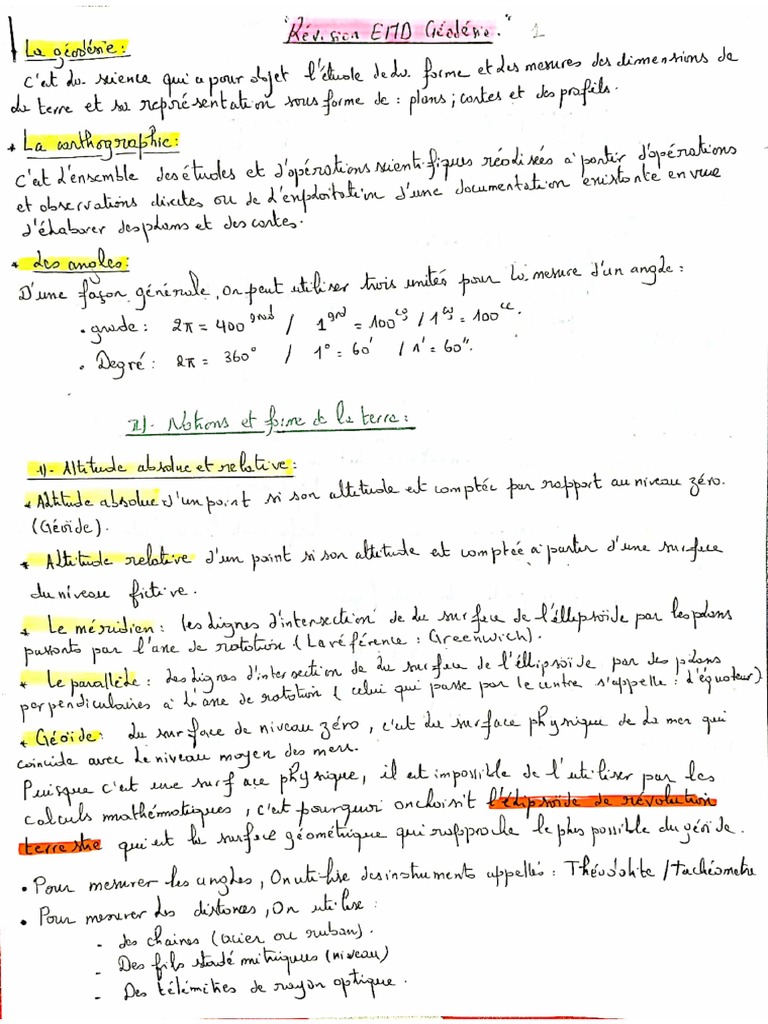 "Révision EMD Géodésie." 1
La géodésie:
C'est la science qui a pour objet l'étude de la forme et des mesures des dimensions de
la terre et sa représentation sous forme de : plans; cartes et des profils.
* La carthographie:
C'est l'ensemble des études et d'opérations scientifiques réalisées à partir d'opérations
et observations directes ou de l'exploitation d'une documentation existante en vue
d'élaborer des plans et des cartes.
* Les angles:
D'une façon générale, on peut utiliser trois unités pour la mesure d'un angle :
• grade : 2π = 400 grad / 1 grd = 100 cg / 1 cg = 100 cc.
• Degré : 2π = 360° / 1° = 60' / 1' = 60".
II)- Notions et forme de la terre :
1)- Altitude absolue et relative :
* Altitude absolue d'un point si son altitude est comptée par rapport au niveau zéro.
(Géoïde).
* Altitude relative d'un point si son altitude est comptée à partir d'une surface
du niveau fictive.
* Le méridien : les lignes d'intersection de la surface de l'éllipsoïde par les plans
passants par l'axe de rotation (La référence : Greenwich).
* Le parallèle : des lignes d'intersection de la surface de l'éllipsoïde par des plans
perpendiculaires à l'axe de rotation ( celui qui passe par le centre s'appelle : l'équateur)
* Géoïde : la surface de niveau zéro, c'est la surface physique de la mer qui
coïncide avec le niveau moyen des mers.
Puisque c'est une surface physique, il est impossible de l'utiliser par les
calculs mathématiques, c'est pourquoi on choisit l'élipsoïde de révolution
terrestre qui est la surface géométrique qui rapproche le plus possible du géoïde.
• Pour mesurer les angles, On utilise des instruments appellés : Théodolite / tachéomètre
• Pour mesurer les distances, On utilise :
- des chaines (acier ou ruban).
- Des fils stadémitriques (niveau)
- Des télémitres de rayon optique.